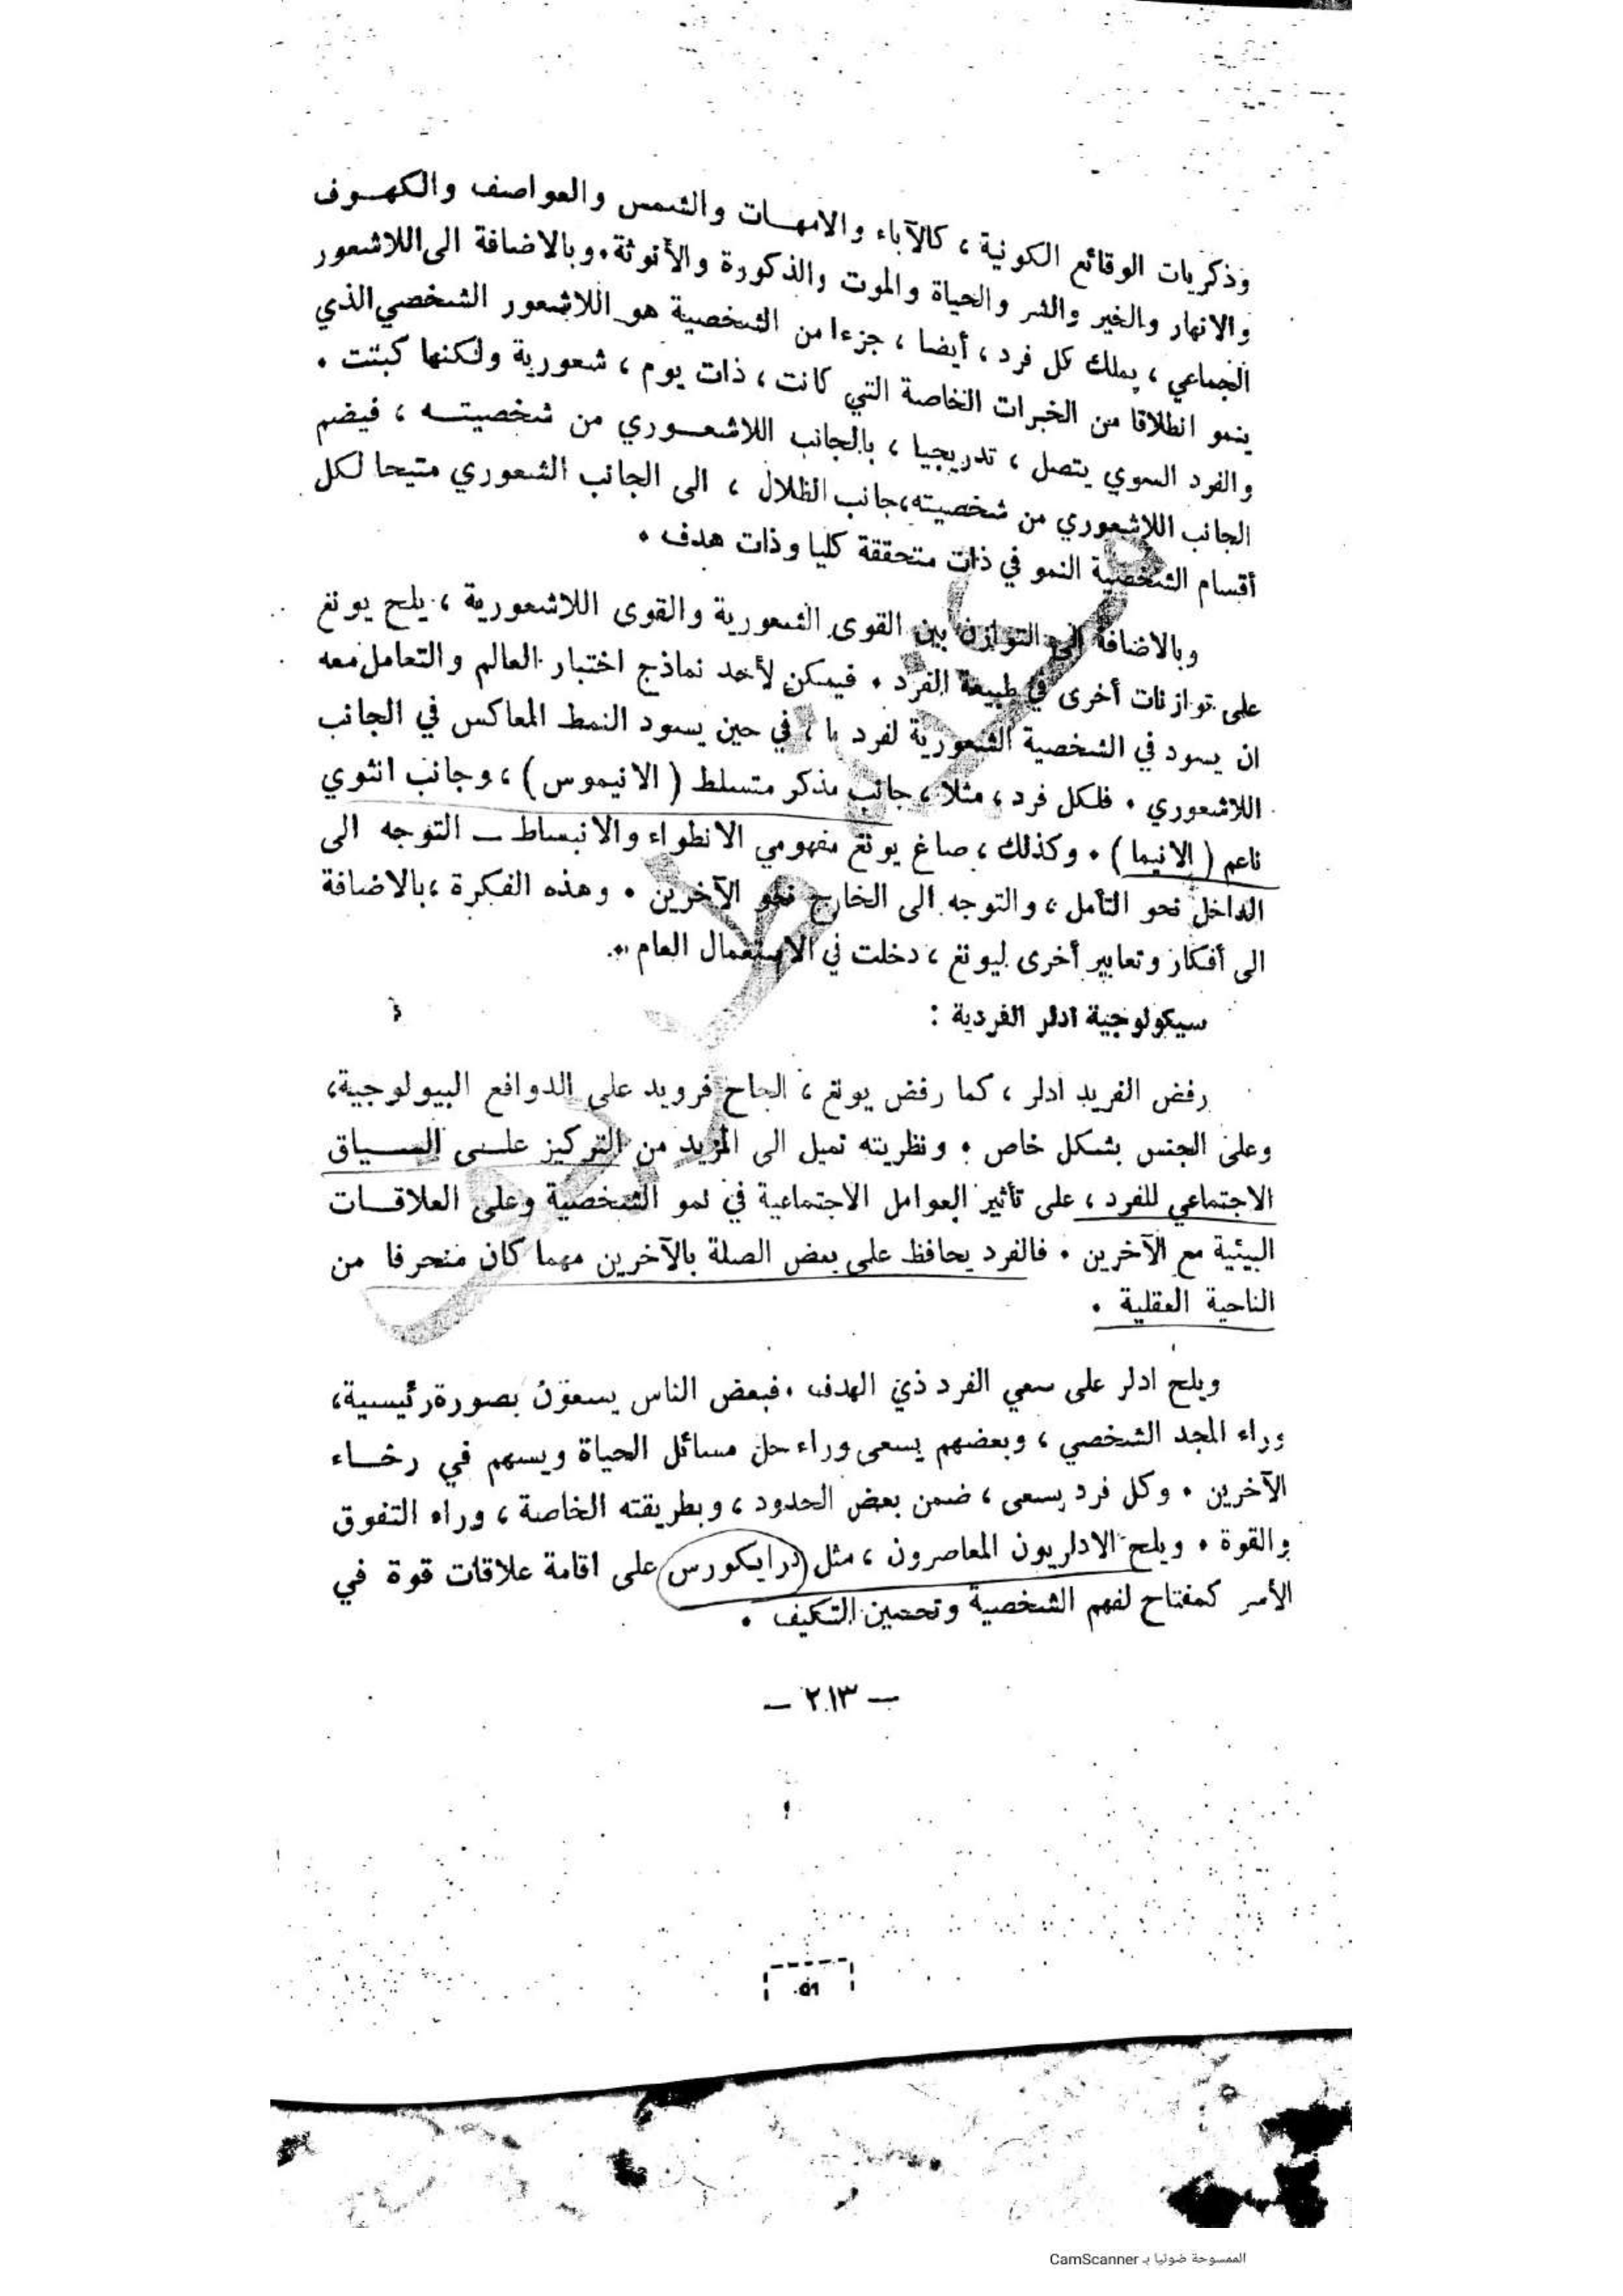 وذكريات الوقائع الكونية ، كالآباء والامهــات والشمس والعواصف والكهــوف
والانهار والخير والشر والحياة والموت والذكورة والأنوثة . وبالاضافة الى اللاشعور
الجماعي ، يملك كل فرد ، أيضا ، جزءا من الشخصية هو اللاشعور الشخصي الذي
ينمو انطلاقا من الخبرات الخاصة التي كانت ، ذات يوم ، شعورية ولكنها كبتت .
والفرد السوي يتصل ، تدريجيا ، بالجانب اللاشعــوري من شخصيتــه ، فيضم
الجانب اللاشعوري من شخصيته ، جانب الظلال ، الى الجانب الشعوري متيحا لكل
أقسام الشخصية النمو في ذات متحققة كليا وذات هدف .
وبالاضافة الى التوازن بين القوى الشعورية والقوى اللاشعورية ، يلح يونغ
على توازنات أخرى في طبيعة الفرد . فيمكن لأحد نماذج اختبار العالم والتعامل معه
ان يسود في الشخصية الشعورية لفرد ما ، في حين يسود النمط المعاكس في الجانب
اللاشعوري . فلكل فرد ، مثلا ، جانب مذكر متسلط ( الانيموس ) ، وجانب انثوي
ناعم ( الانيما ) . وكذلك ، صاغ يونغ مفهومي الانطواء والانبساط ــ التوجه الى
الداخل نحو التأمل ، والتوجه الى الخارج نحو الآخرين . وهذه الفكرة ، بالاضافة
الى أفكار وتعابير أخرى ليونغ ، دخلت في الاستعمال العام .
سيكولوجية ادلر الفردية :
رفض الفريد ادلر ، كما رفض يونغ ، الحاح فرويد على الدوافع البيولوجية ،
وعلى الجنس بشكل خاص . ونظريته تميل الى المزيد من التركيز علــى الســياق
الاجتماعي للفرد ، على تأثير العوامل الاجتماعية في نمو الشخصية وعلى العلاقــات
البيئية مع الآخرين . فالفرد يحافظ على بعض الصلة بالآخرين مهما كان منحرفا من
الناحية العقلية .
ويلح ادلر على سعي الفرد ذي الهدف . فبعض الناس يسعون بصورة رئيسية ،
وراء المجد الشخصي ، وبعضهم يسعى وراء حل مسائل الحياة ويسهم في رخــاء
الآخرين . وكل فرد يسعى ، ضمن بعض الحدود ، وبطريقته الخاصة ، وراء التفوق
والقوة . ويلح الادلريون المعاصرون ، مثل درايكورس على اقامة علاقات قوة في
الأسر كمفتاح لفهم الشخصية وتحسين التكيف .
ــ ٢١٣ ــ
الممسوحة ضوئيا بـ CamScanner